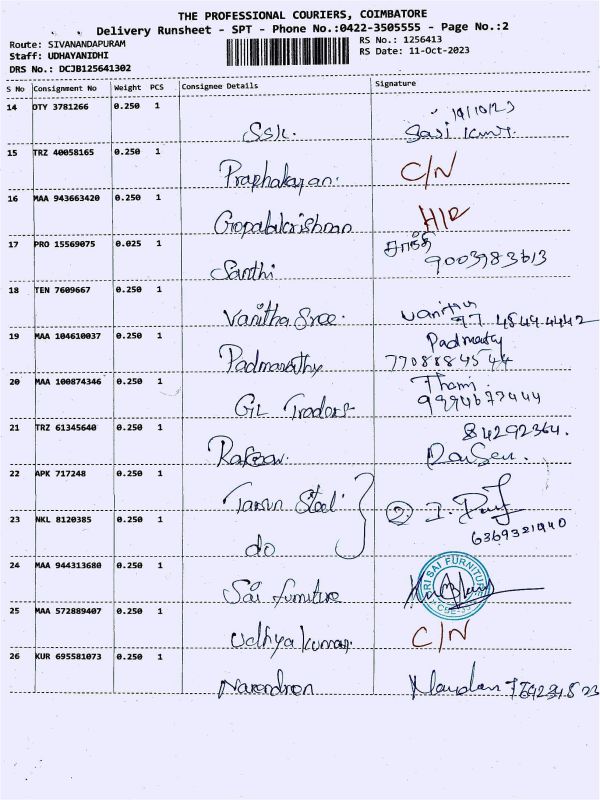 THE PROFESSIONAL COURIERS, COIMBATORE
Delivery Runsheet - SPT - Phone No.:0422-3505555 - Page No.:2
Route: SIVANANDAPURAM
Staff: UDHAYANIDHI
DRS No.: DCJB125641302
RS No.: 1256413
RS Date: 11-Oct-2023
S No Consignment No Weight PCS Consignee Details Signature
14 DTY 3781266 0.250 1 Ssk.
15 TRZ 40058165 0.250 1 Praphakaran. C/N
16 MAA 943663420 0.250 1 Gopalakrishnan
17 PRO 15569075 0.025 1 Santhi சாந்தி
9003983613
18 TEN 7609667 0.250 1 Vanitha Sree.
19 MAA 104610037 0.250 1 Padmavathy
20 MAA 100874346 0.250 1 GL Traders
21 TRZ 61345640 0.250 1 84292364.
22 APK 717248 0.250 1 Tarun Steel
23 NKL 8120385 0.250 1 do
24 MAA 944313680 0.250 1 Sai furniture
SRI SAI FURNITURE
25 MAA 572889407 0.250 1 Udhya kumar. C/N
26 KUR 695581073 0.250 1 Narendren